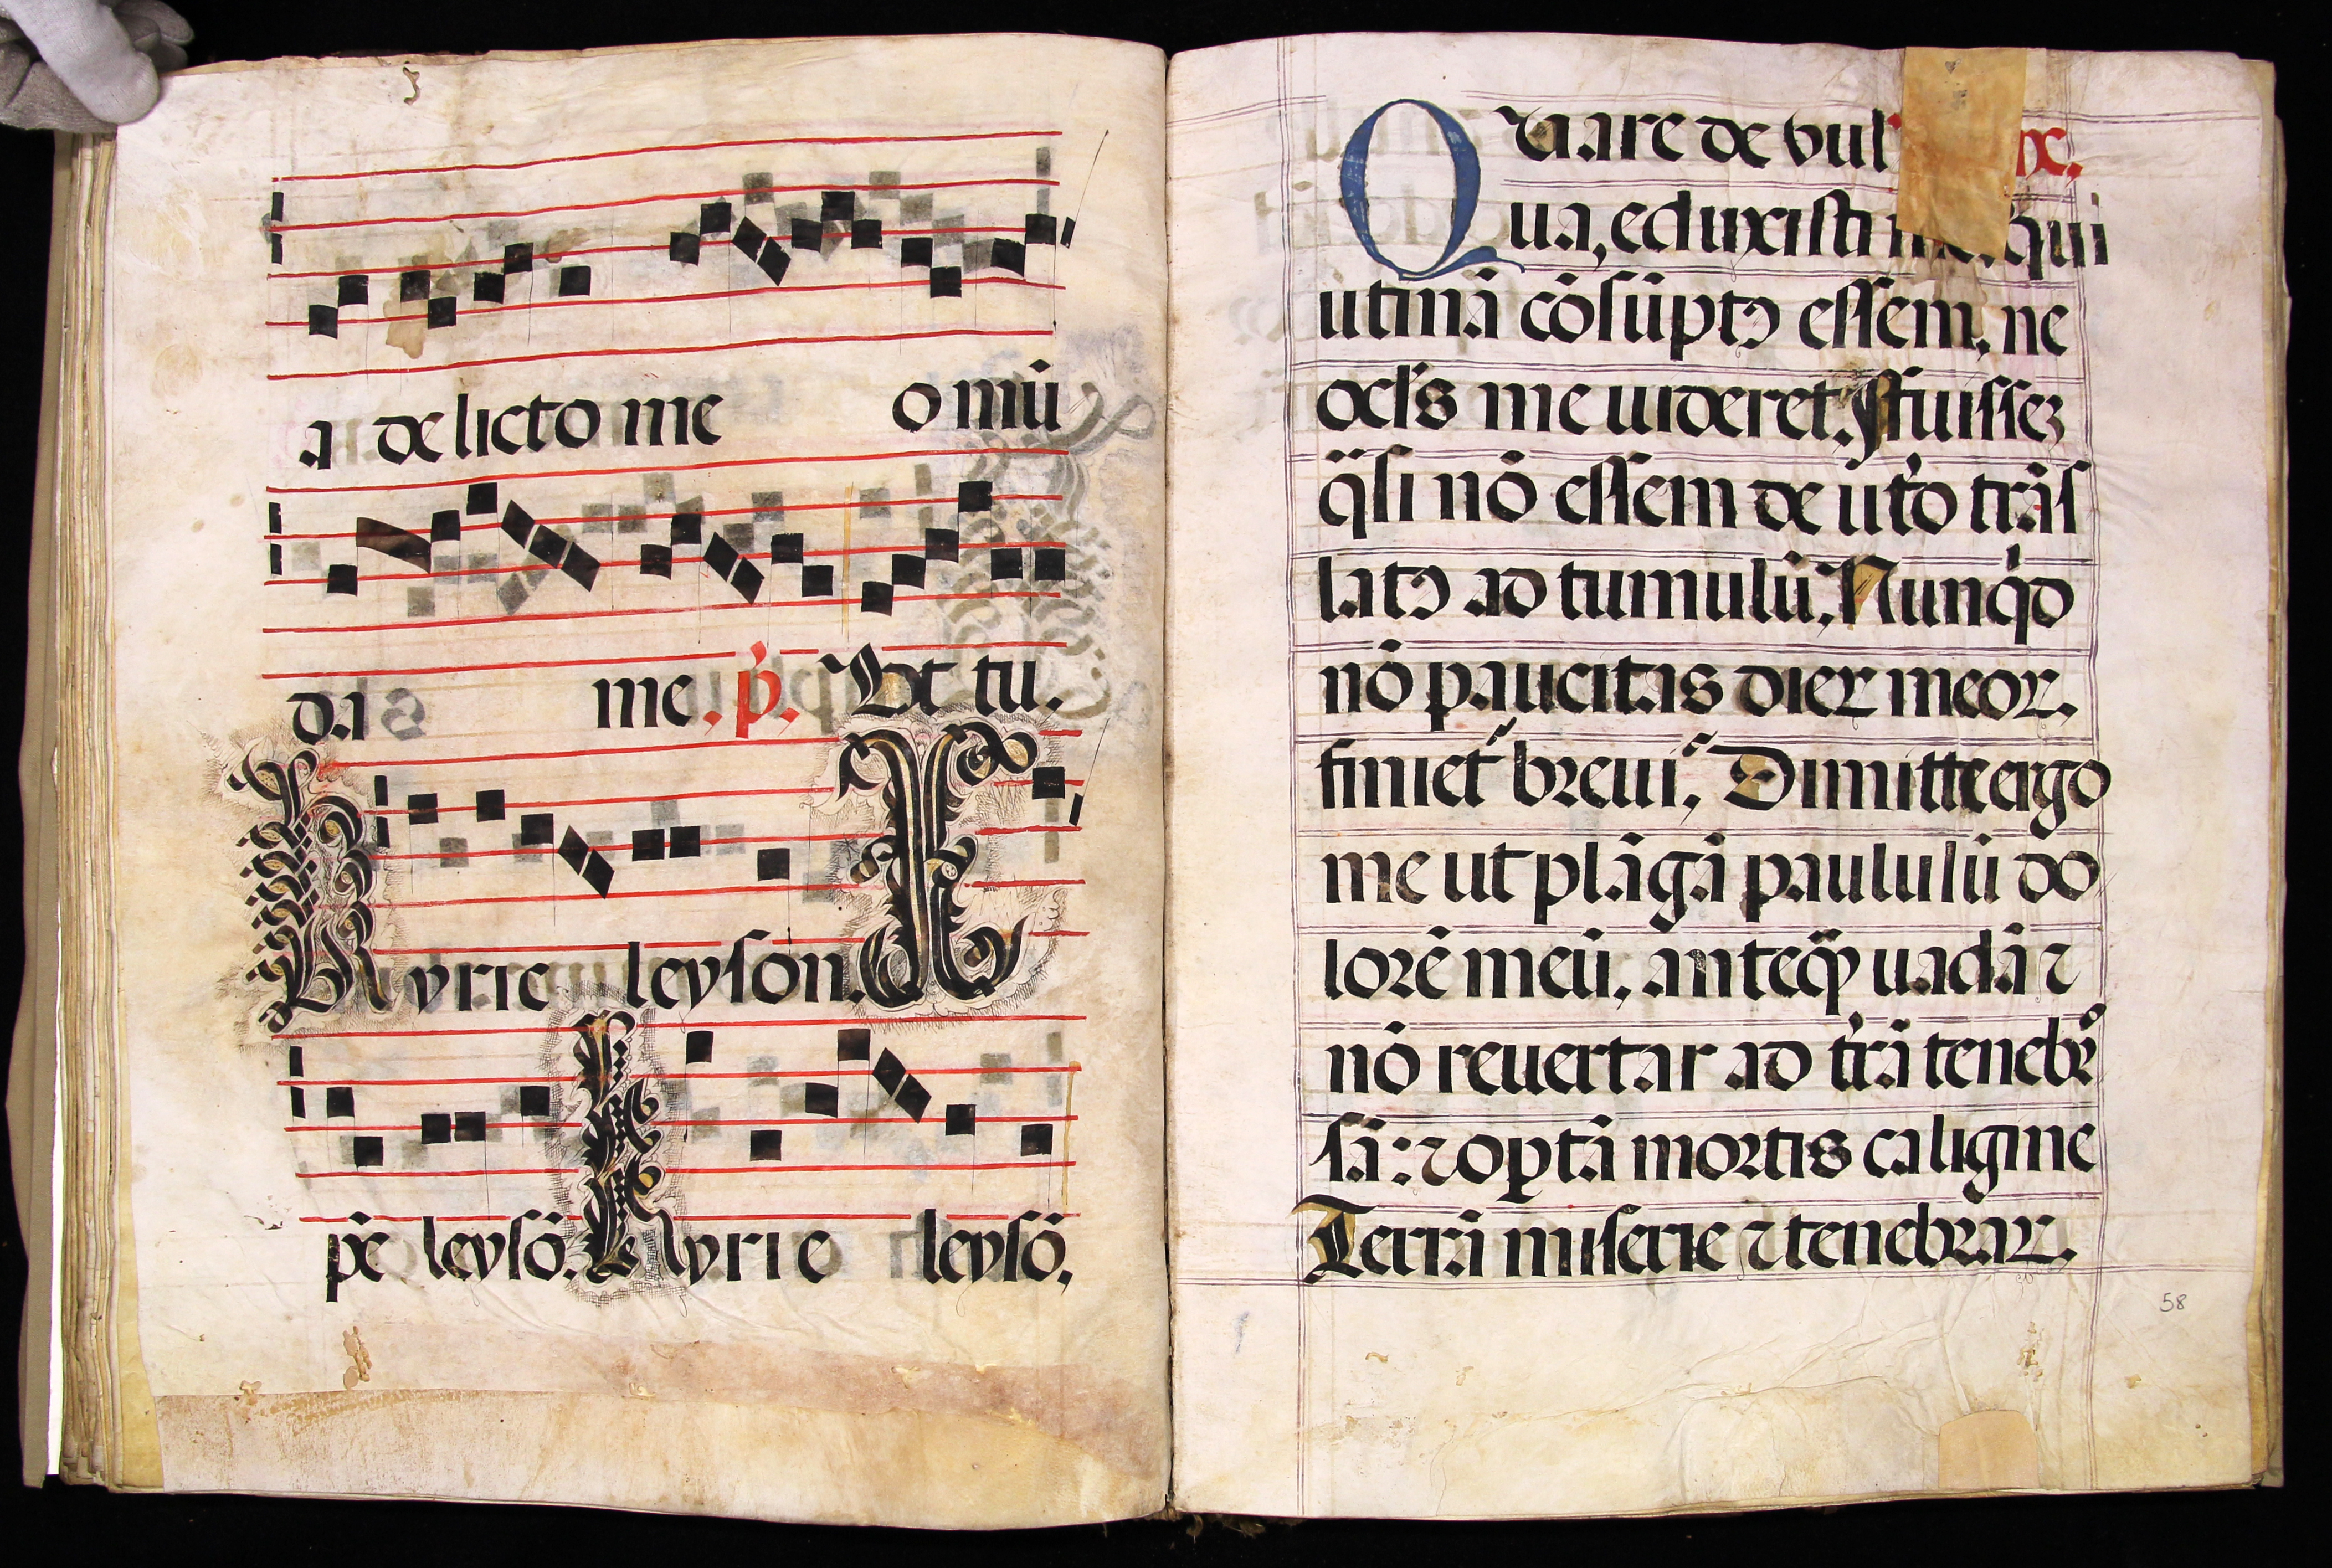 a delicto me o mū
da me. p̄. Et tu.
Kyrie leyson. X
pe leysō. Kyrie leysō.
Quare de vul
ua, eduxisti me. qui
utinā cōsūptꝰ essem, ne
ocl's me uideret. Fuissez
q̄si nō essem de ut'o trās
latꝰ ad tumulū. Nunq̇d
nō paucitas dieꝝ meoꝝ.
finiet᷑ breui᷑. Dimitte ergo
me ut plāgā paululū do
lorē meū, anteq̄ uadā ⁊
nō reuertar ad t'rā tenebro
sā: ⁊ opꝑtā mortis caligine
Terrā miserie ⁊ tenebraꝝ.
58